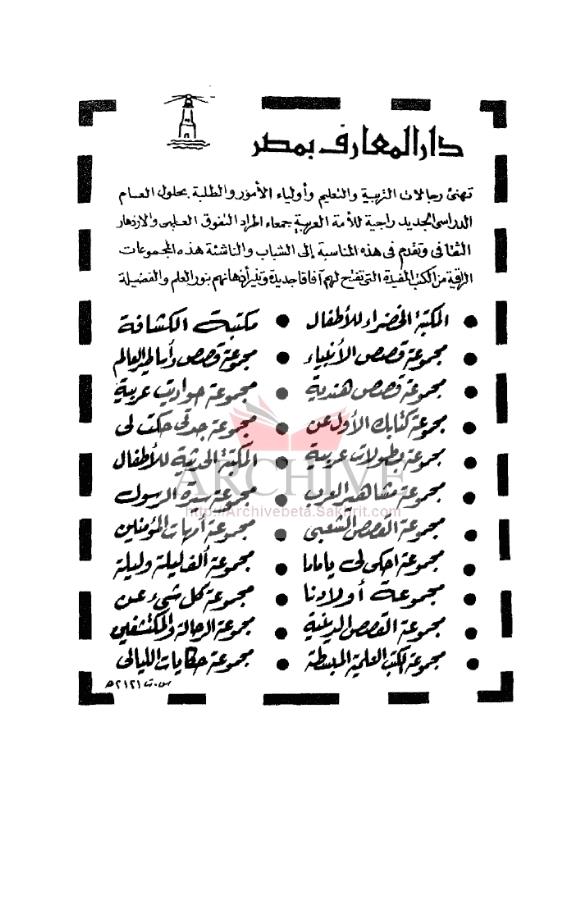 دار المعارف بمصر
تهنئ رجالات التربية والتعليم وأولياء الأمور والطلبة بحلول العام
الدراسى الجديد راجية للأمة العربية جمعاء اطراد التفوق العلمى والازدهار
الثقافى وتقدم فى هذه المناسبة إلى الشباب والناشئة هذه المجموعات
الراقية من الكتب المفيدة التى تفتح لهم آفاقا جديدة وتنير أذهانهم بنور العلم والفضيلة
● المكتبة الخضراء للأطفال ● مكتبة الكشافة
● مجموعة قصص الأنبياء ● مجموعة قصص وأساطير العالم
● مجموعة قصص هندية ● مجموعة حواديت عربية
● مجموعة كتابك الأول عن ● مجموعة جدتى حكت لى
● مجموعة بطولات عربية ● المكتبة الحديثة للأطفال
● مجموعة مشاهير العرب ● مجموعة سيرة الرسول
● مجموعة القصص الشعبى ● مجموعة أمهات المؤمنين
● مجموعة احكى لى يا ماما ● مجموعة ألف ليلة وليلة
● مجموعة أولادنا ● مجموعة كل شىء عن
● مجموعة القصص الدينية ● مجموعة الرحالة والمكتشفين
● مجموعة الكتب العلمية المبسطة ● مجموعة حكايات الليالى
ARCHIVE
http://Archivebeta.Sakhrit.com